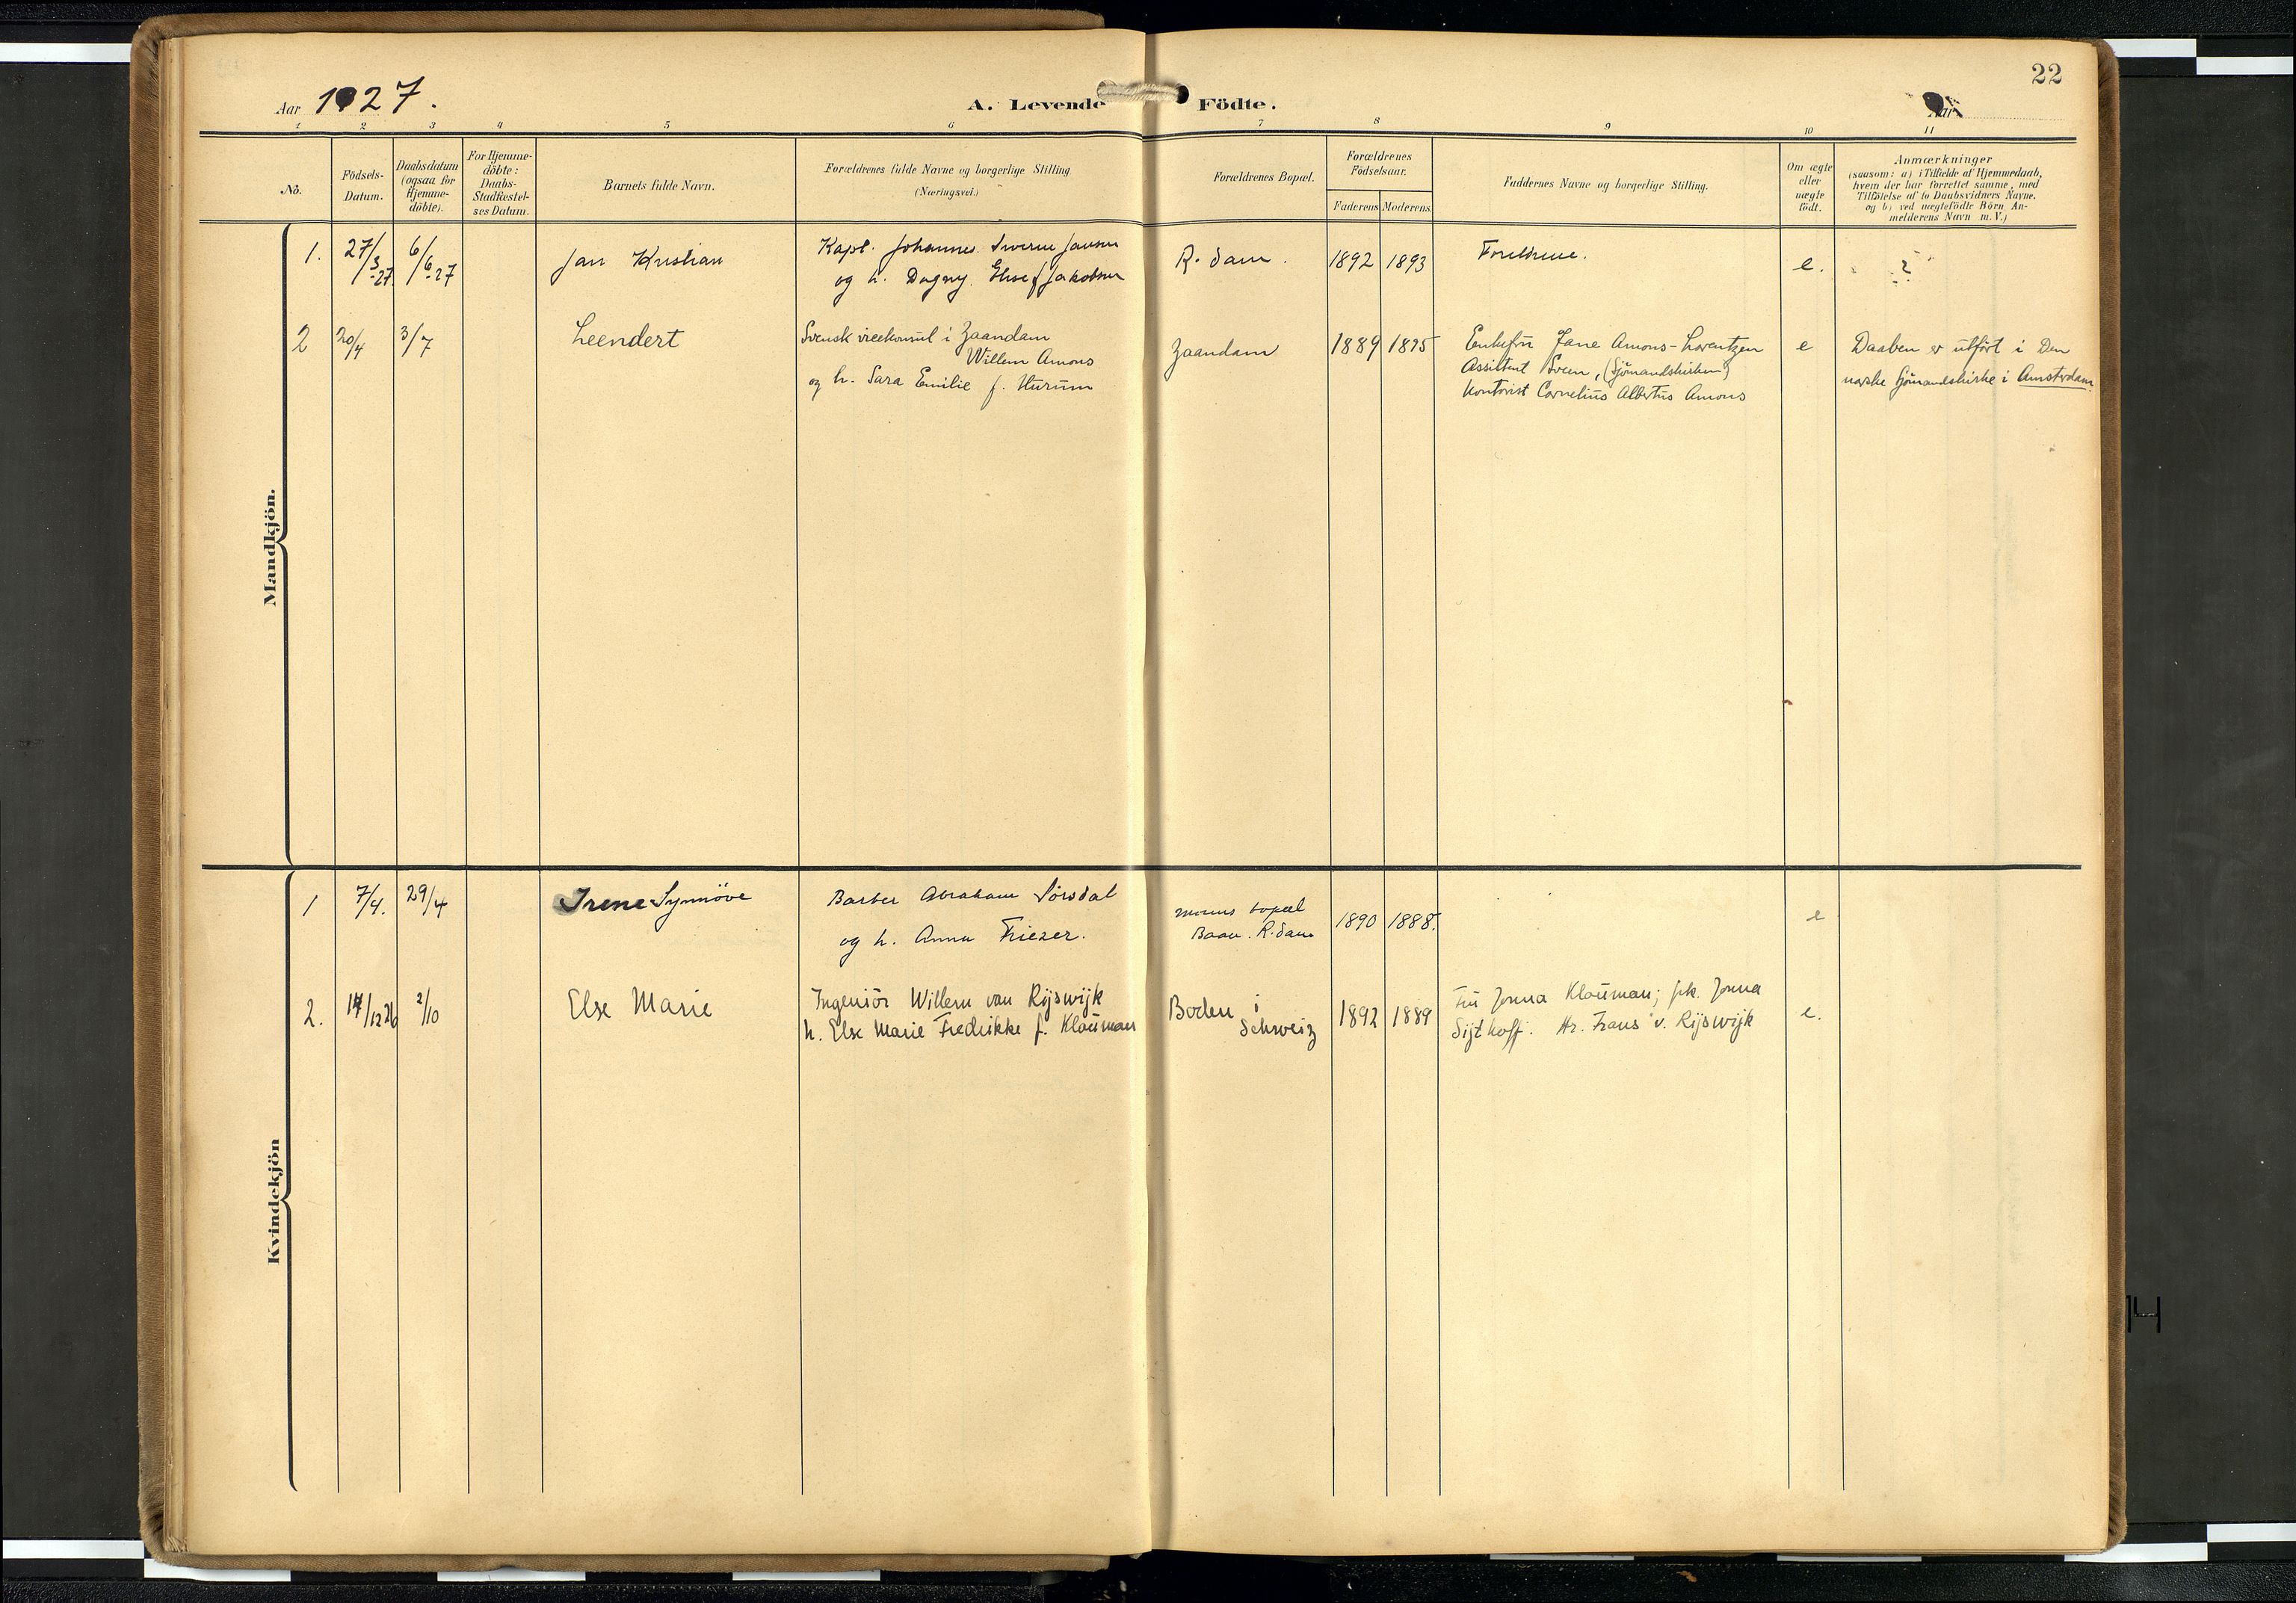 22
Aar 1927.
A. Levende Födte.
Aar
1 2 3 4 5 6 7 8 9 10 11
No.
Födsels-
Datum.
Daabsdatum
(ogsaa for
Hjemme-
döbte).
For Hjemme-
döbte:
Daabs-
Stadfæstel-
ses Datum.
Barnets fulde Navn.
Forældrenes fulde Navne og borgerlige Stilling
(Næringsvei.)
Forældrenes Bopæl.
Forældrenes
Födselsaar.
Faderens Moderens
Faddernes Navne og borgerlige Stilling.
Om ægte
eller
uægte
födt.
Anmærkninger
(saasom: a) i Tilfælde af Hjemmedaab,
hvem der har forrettet samme, med
Tilföielse af to Daabsvidners Navne,
og b) ved uægtefödte Börn An-
melderens Navn m. V.)
Mandkjön.
1.
27/3-27.
6/6-27
Jan Kristian
Kapt. Johannes Sverre Jansen
og h. Dagny Elise f Jakobsen
R.dam.
1892 1893
Foreldrene.
e.
?
2
20/4
3/7
Leendert
Svensk vicekonsul i Zaandam
Willem Amons
og h. Sara Emilie f. Hurum
Zaandam
1889 1895
Enkefru Jane Amons-Lorentzen
Assistent Sveen, (Sjömandskirken)
Kontorist Cornelius Albertus Amons
e
Daaben er utfört i Den
norske Sjömandskirke i Amsterdam.
Kvindekjön
1
7/4.
29/4
Irene Synnöve
Barber Abraham Sörsdal
og h. Anna Friezer.
morens bopæl
Baan. R.dam
1890 1888.
e
2.
14/12 26
2/10
Else Marie
Ingeniör Willem van Rijswijk
h. Else Marie Fredrikke f. Klouman
Boden i
Schweiz
1892 1889
Fru Jonna Klouman; frk. Jonna
Sijthoff. Hr. Frans v. Rijswijk
e.
14